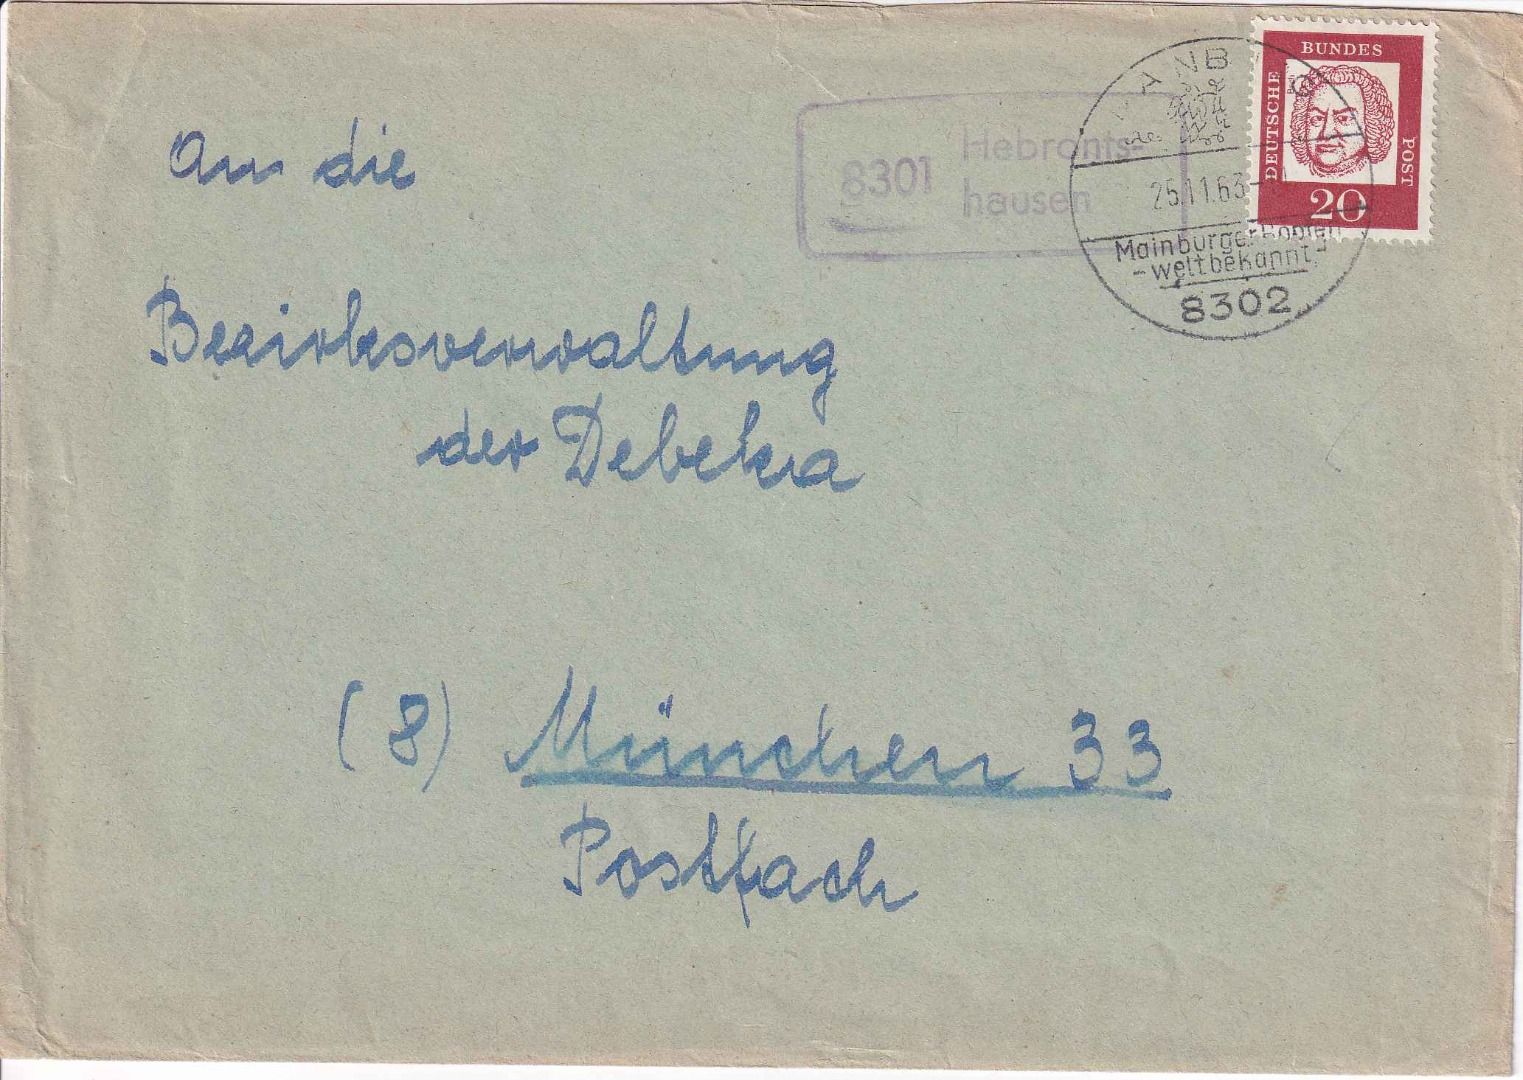 BUNDES
DEUTSCHE
POST
20
8301
Hebronts-
hausen
25.11.63
Mainburger Hopfen
-weltbekannt-
8302
An die
Bezirksverwaltung
der Debeka
(8) München 33
Postfach